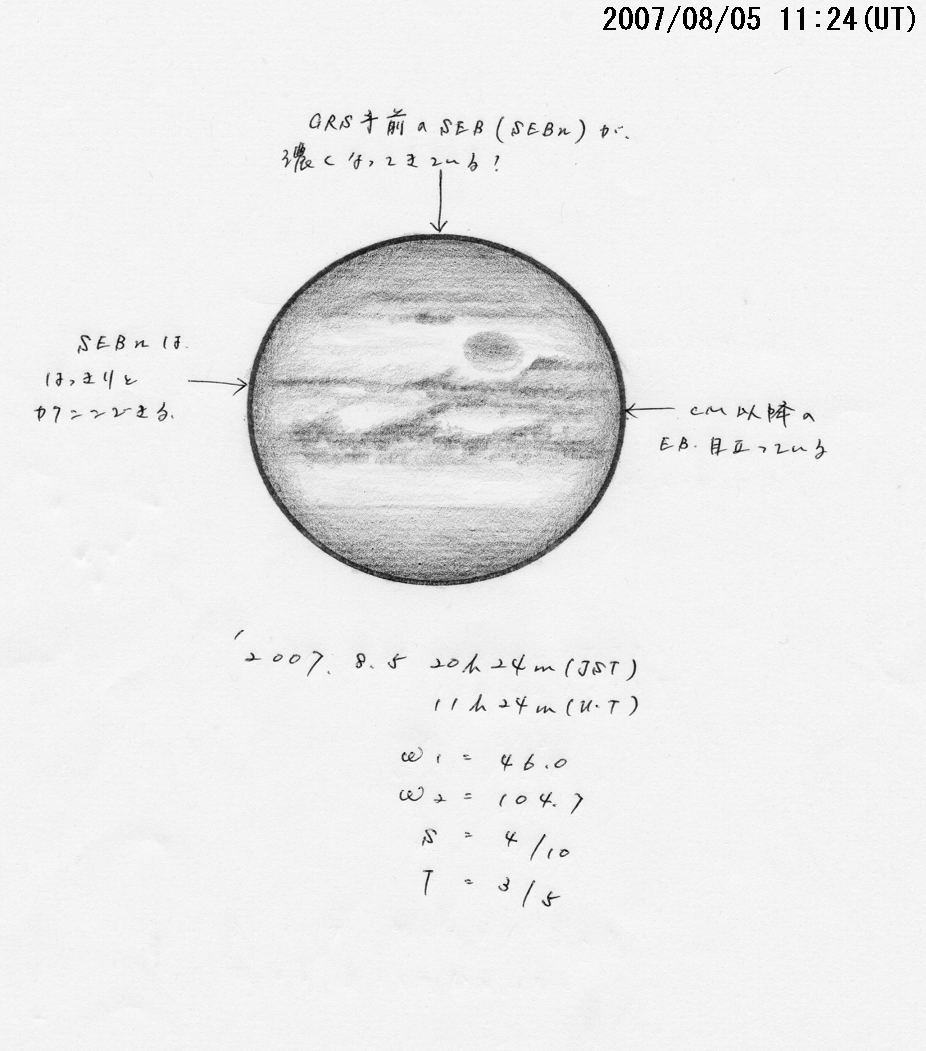 2007/08/05 11:24(UT)
GRS手前のSEB(SEBn)が、
濃くなってきている?
SEBnは
はっきりと
カクニンできる.
CM以降の
EB.目立っている
'2007. 8.5 20h24m(JST)
11h24m(U.T)
ω1 = 46.0
ω2 = 104.7
S = 4/10
T = 3/5